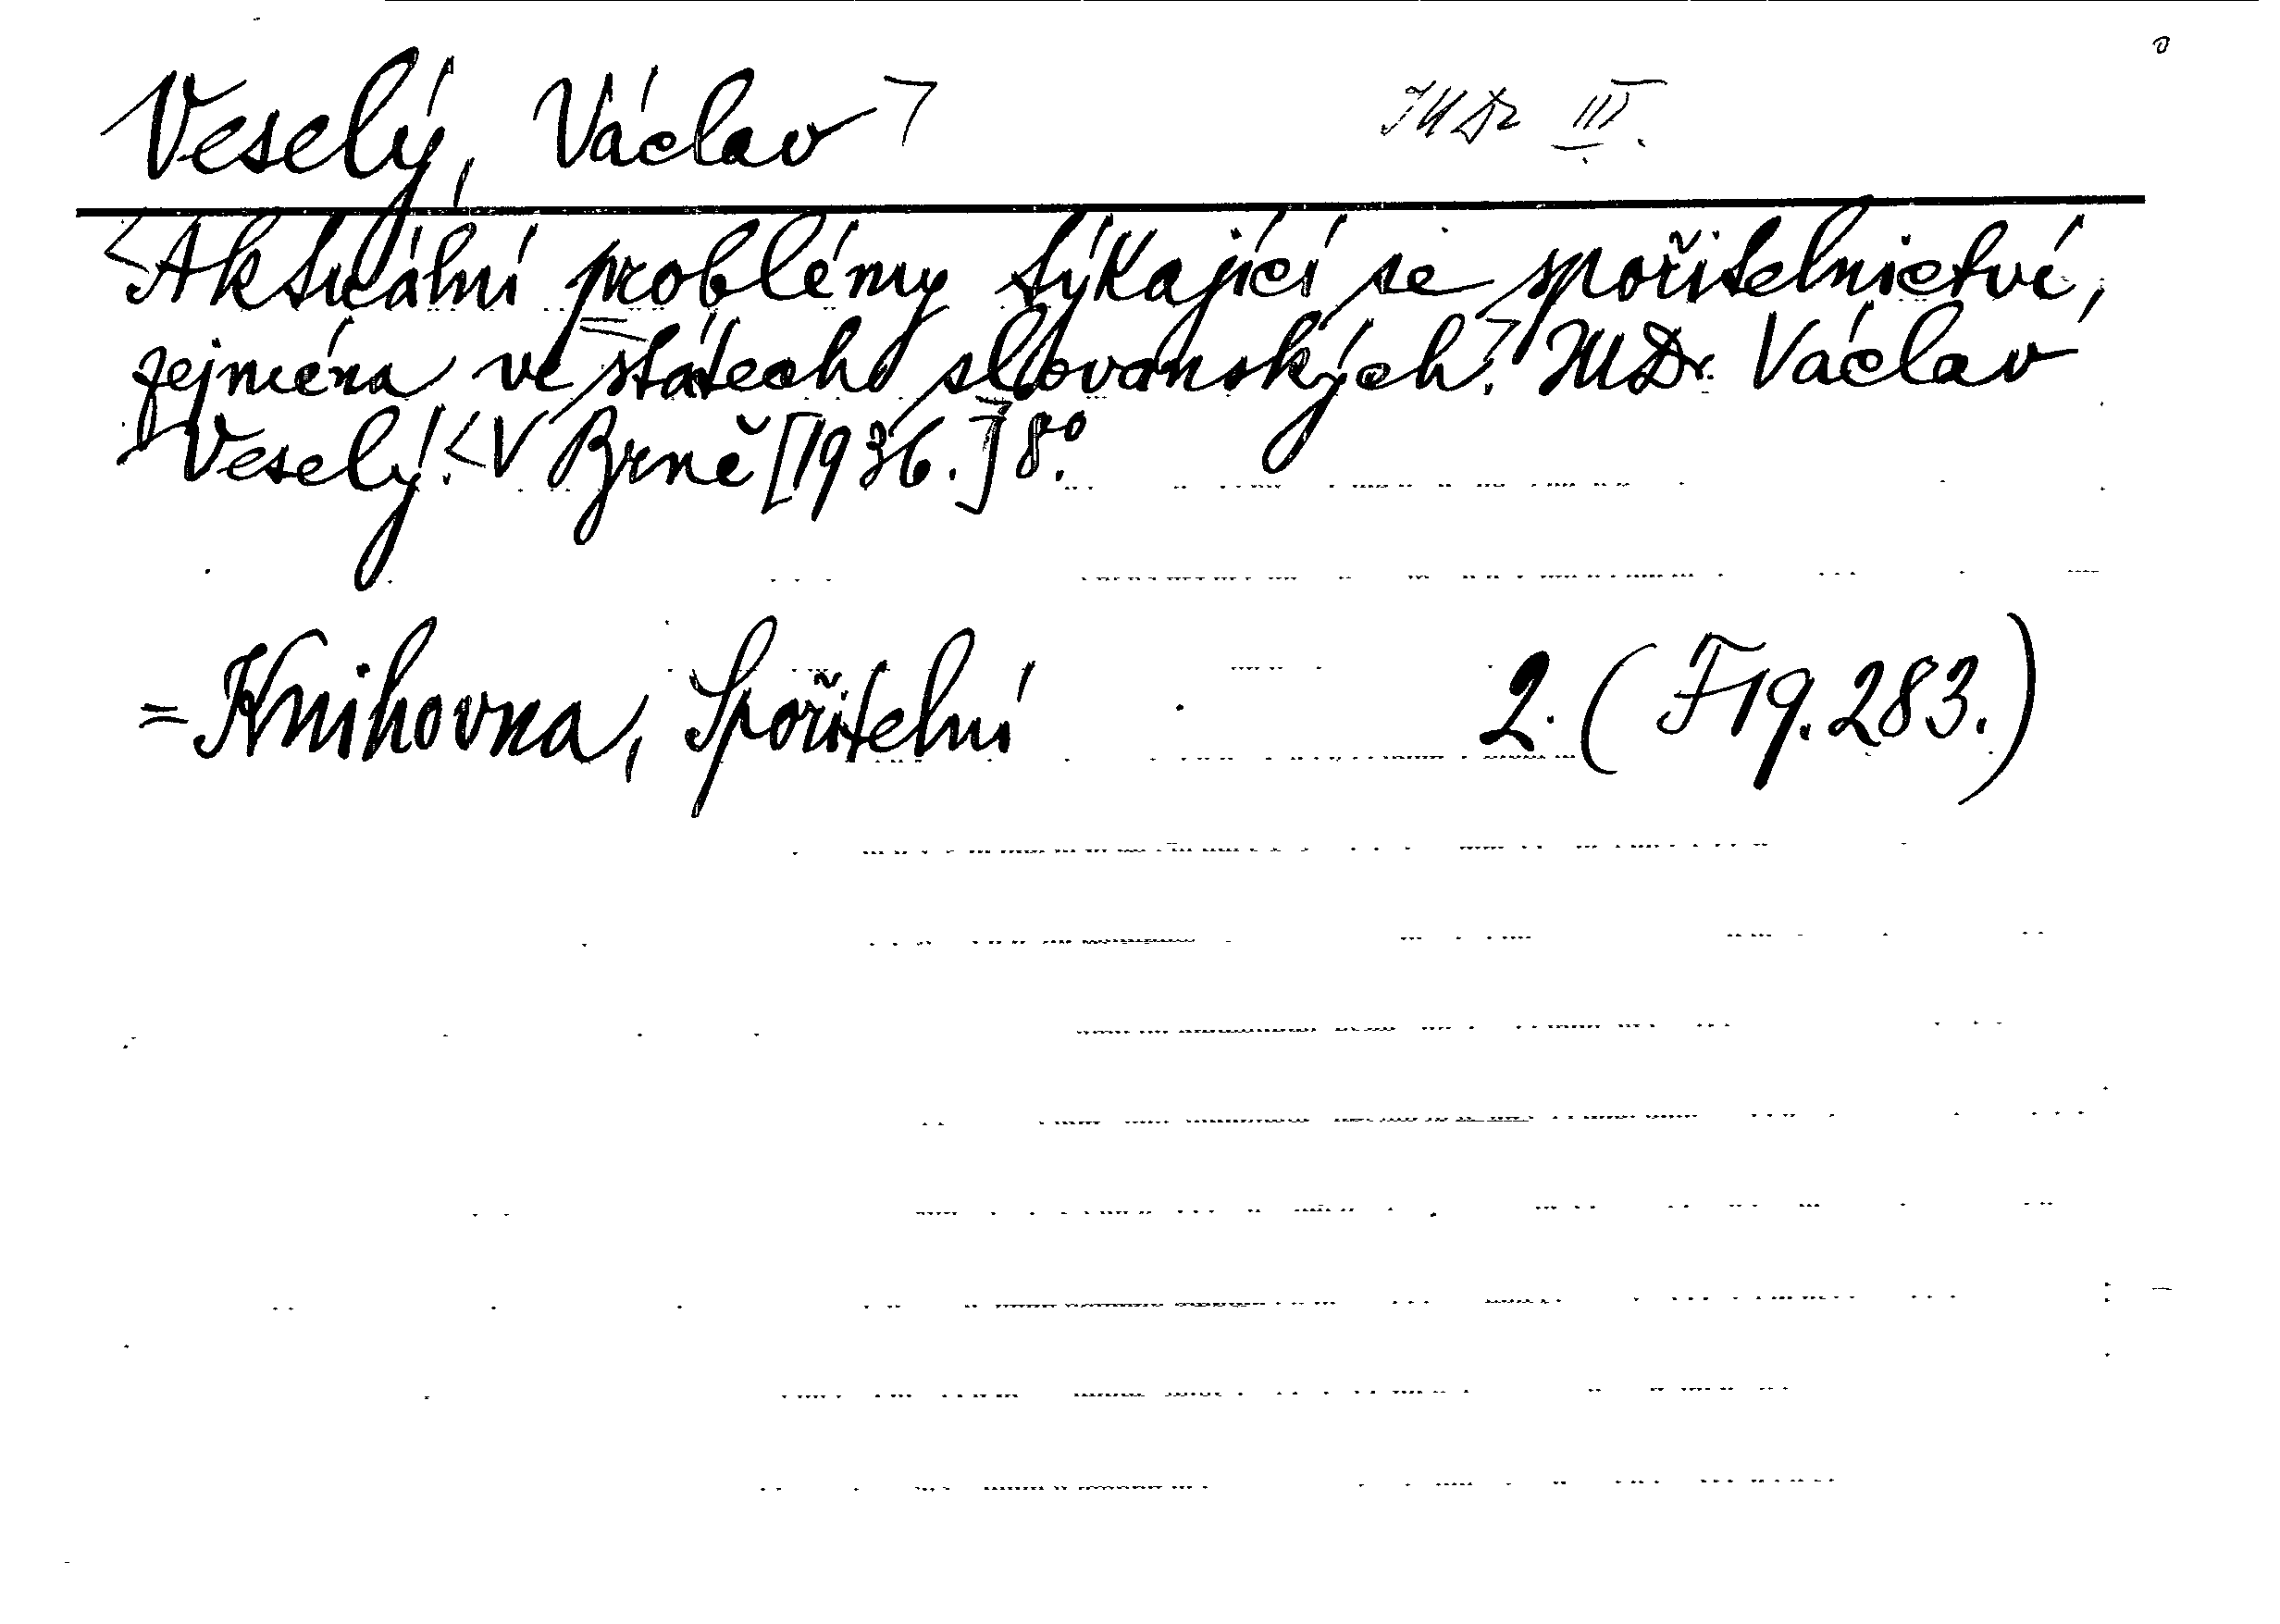 Veselý, Václav JUDr III.
Aktuální problémy týkající se spořitelnictví,
zejména ve státech slovanských. JUDr. Václav
Veselý. V Brně [1936.] 8º.
= Knihovna, Spořitelní 2. (F19.283.)